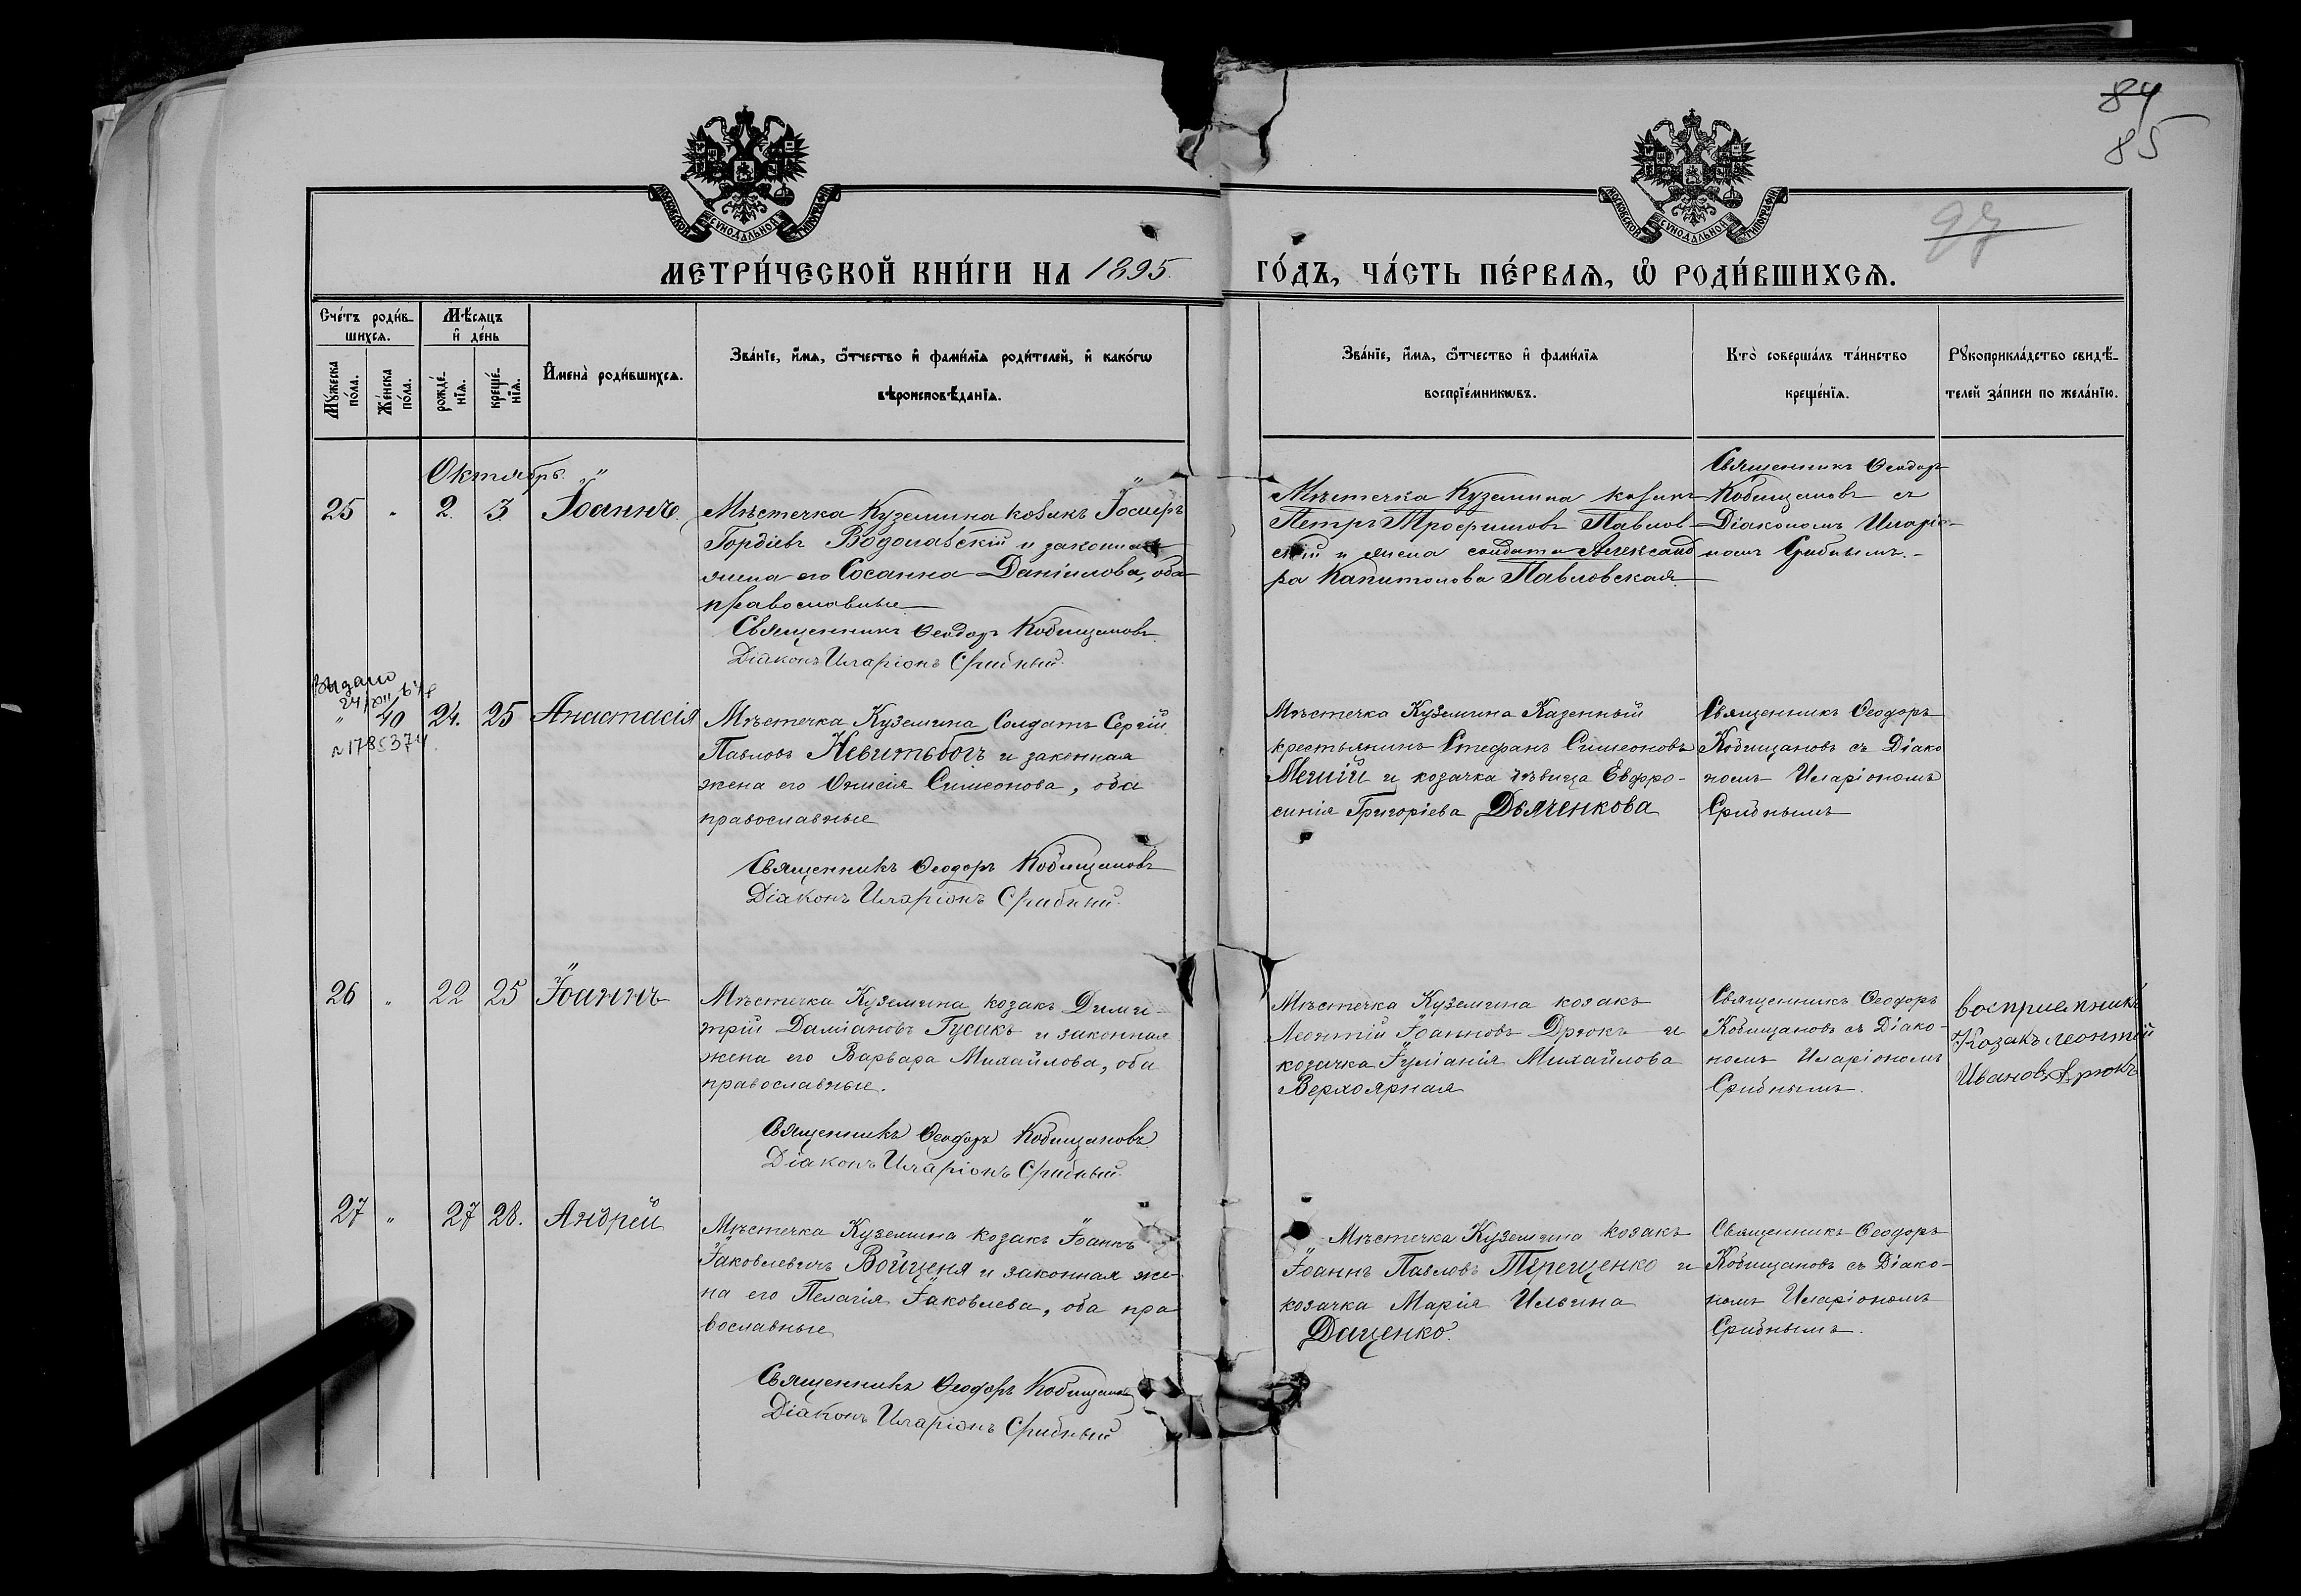 84
85
97
МОСКОВСКОЙ СѴНОДАЛЬНОЙ ТИПОГРАФІИ
МОСКОВСКОЙ СѴНОДАЛЬНОЙ ТИПОГРАФІИ
МЕТРИ́ЧЕСКОЙ КНИ́ГИ НА 1895 ГО́ДЪ, ЧА́СТЬ ПЕ́РВАѦ, Ѡ҆ РОДИ́ВШИХСѦ.
Счє́тъ роди́в-
шихсѧ.
Мѣ́сѧцъ
и҆ дє́нь
Мꙋ́жєска
по́ла.
Жє́нска
по́ла.
рождє́-
нїѧ.
крєщє́-
нїѧ.
И҆мєна̀ роди́вшихсѧ.
Зва́нїє, и҆́мѧ, ѻ҆́тчєство и҆ фами́лїѧ роди́тєлєй, и҆ како́гѡ
вѣроисповѣ́данїѧ.
Зва́нїє, и҆́мѧ, ѻ҆́тчєство и҆ фами́лїѧ
воспрїє́мникѡвъ.
Кто̀ совєрша́лъ та́инство
крєщє́нїѧ.
Рꙋкоприкла́дство свидѣ́-
тєлєй за́писи по жєла́нїю.
Октябрь.
25 " 2. 3. Іоаннъ.
Мѣстечка Куземина козакъ Іосифъ
Гордіевъ Водолавскій и законная
жена его Сосанна Даніилова, оба
православные
Священникъ Ѳеодоръ Кобищановъ
Діаконъ Иларіонъ Срибный.
Мѣстечка Куземина козакъ
Петръ Трофимовъ Павлов-
скій и жена солдата Александ
ра Капитонова Павловская.
Священникъ Ѳеодоръ
Кобищановъ съ
Діакономъ Иларіо-
номъ Срибнымъ.-
Выдано
" 40 24. 25 Анастасія
Мѣстечка Куземина Солдатъ Сергій
Павловъ Невитьбогъ и законная
жена его Онисія Симеонова, оба
православные
Священникъ Ѳеодоръ Кобищановъ
Діаконъ Иларіонъ Срибный.
Мѣстечка Куземина Казенный
крестьянинъ Стефанъ Симеоновъ
и козачка дѣвица Евфро-
синія Григоріева Дяченкова
Священникъ Ѳеодоръ
Кобищановъ съ Діако
номъ Иларіономъ
Срибнымъ
26 " 22 25 Іоаннъ
Мѣстечка Куземина козакъ Дими-
трій Даміановъ Гусакъ и законная
жена его Варвара Михайлова, оба
православные.
Священникъ Ѳеодоръ Кобищановъ
Діаконъ Иларіонъ Срибный.
Мѣстечка Куземина козакъ
Леонтій Іоанновъ Дрюкъ и
козачка Іуліанія Михайлова
Верхоярная
Священникъ Ѳеодоръ
Кобищановъ съ Діако-
номъ Иларіономъ
Срибнымъ.
восприемникъ
Козакъ леонтий
Ивановъ Дрюкъ
27 " 27 28. Андрей
Мѣстечка Куземина козакъ Іоаннъ
Іаковлевичъ Войценя и законная же-
на его Пелагія Іаковлева, оба пра
вославные
Священникъ Ѳеодоръ Кобищановъ
Діаконъ Иларіонъ Срибный
Мѣстечка Куземина козакъ
Іоаннъ Павловъ Терещенко и
козачка Марія Ильина
Даценко.
Священникъ Ѳеодоръ
Кобищановъ съ Діако-
номъ Иларіономъ
Срибнымъ.